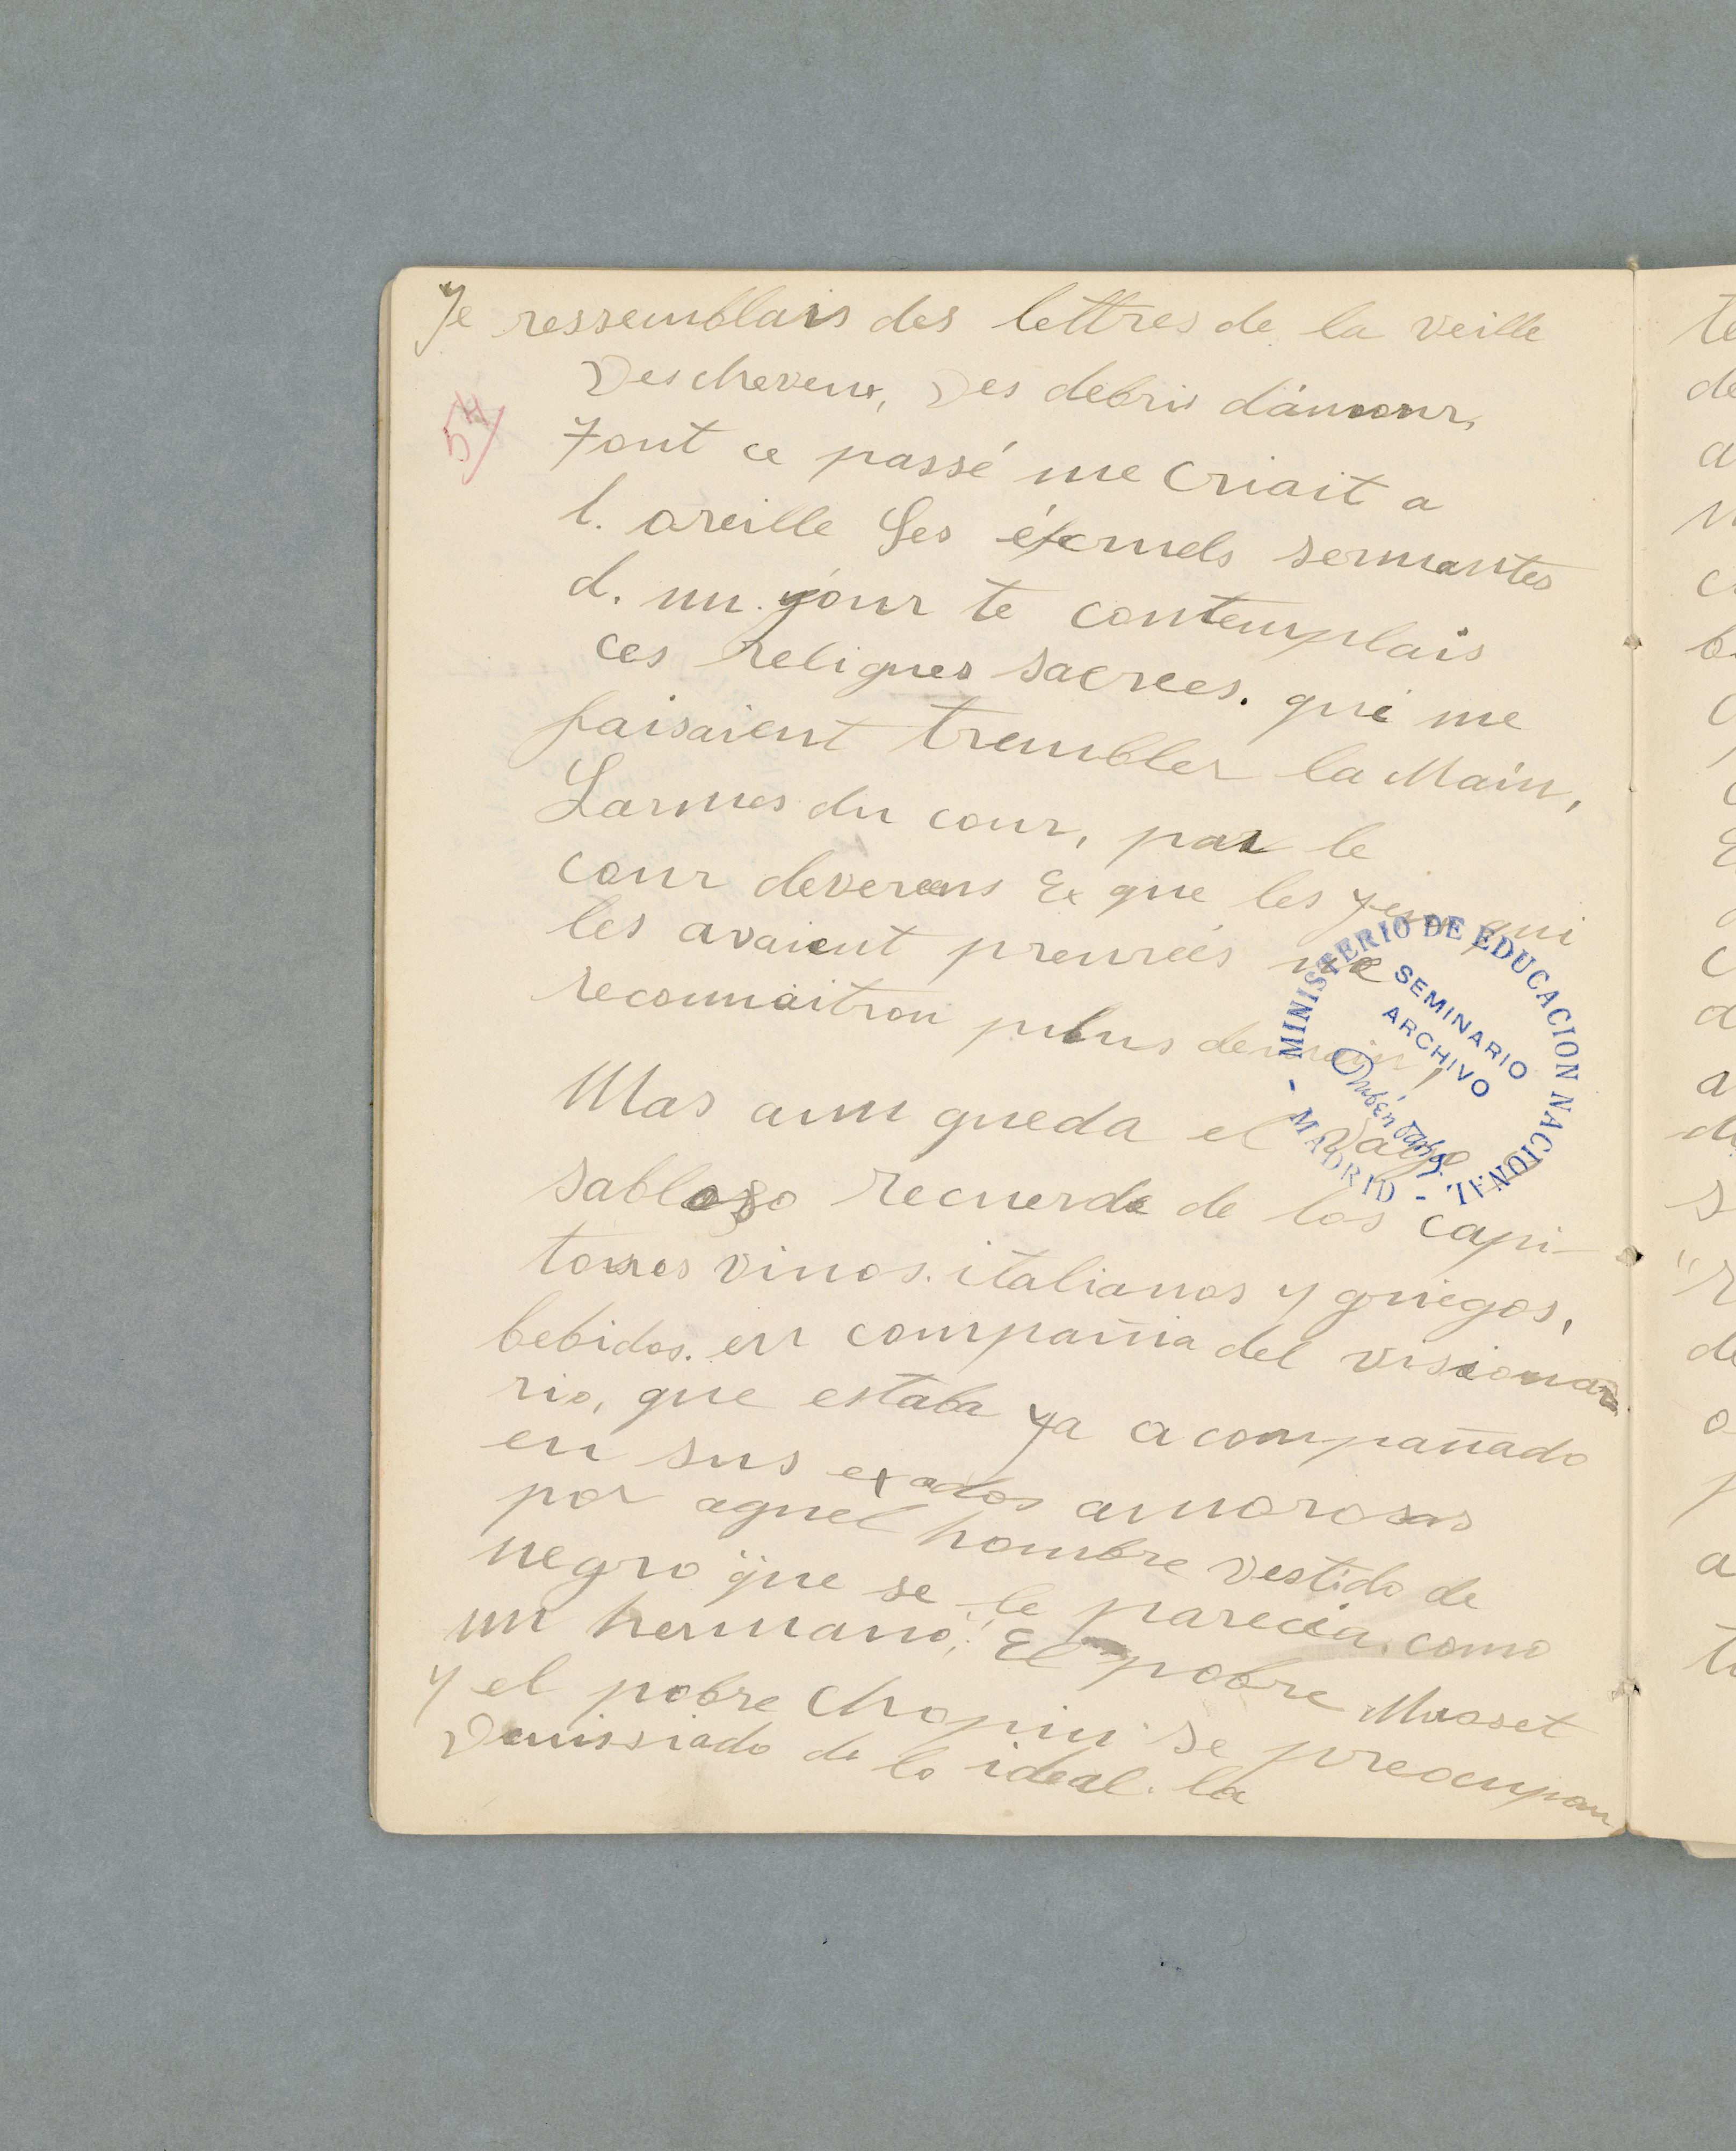 Je ressemblais des lettres de la veille
Des cheveux, Des debris d'amour,
Tout ce passé me criait a
l. oreille Ses éternels sermantes
d. un. jour te contemplais
ces reliques sacrees. qui me
faisaient trembler la Main,
Larmes du cour, par le
cour deverens Ex que les yeux qui
les avaient preurées ne
reconnaitron plus demain!
Mas aun queda el vago y
sabloso recuerdo de los capi-
tosos vinos. italianos y griegos,
bebidos. en compañia del visiona
rio, que estaba ya acompañado
en sus exados amorosas
por aquel hombre vestido de
negro "que se le parecia. como
un hermano." El pobre Musset
y el pobre Chopin se preocupan
Demissiado de lo ideal. la
54
MINISTERIO DE EDUCACION NACIONAL - MADRID -
SEMINARIO
ARCHIVO
Rubén Darío
te
de
a